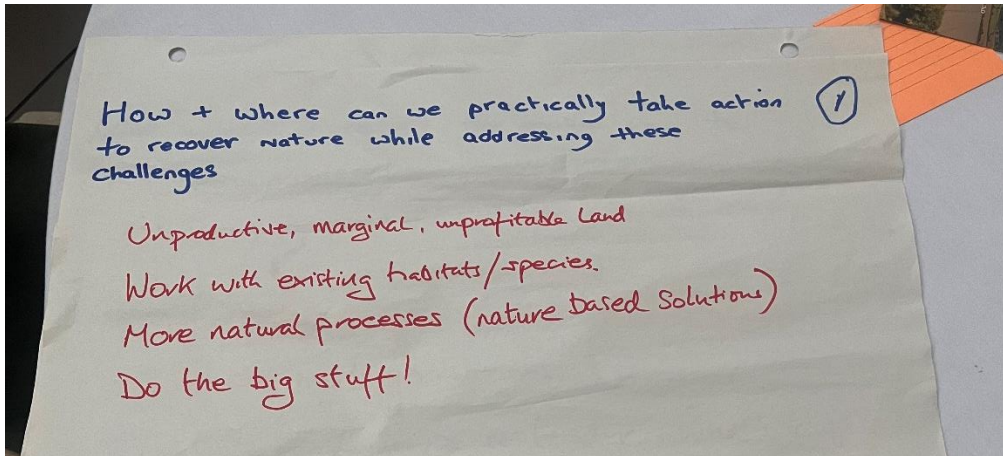 How + where can we practically take action
to recover Nature while addressing these
challenges
1
Unproductive, marginal, unprofitable Land
Work with existing habitats/species.
More natural processes (nature based Solutions)
Do the big stuff!